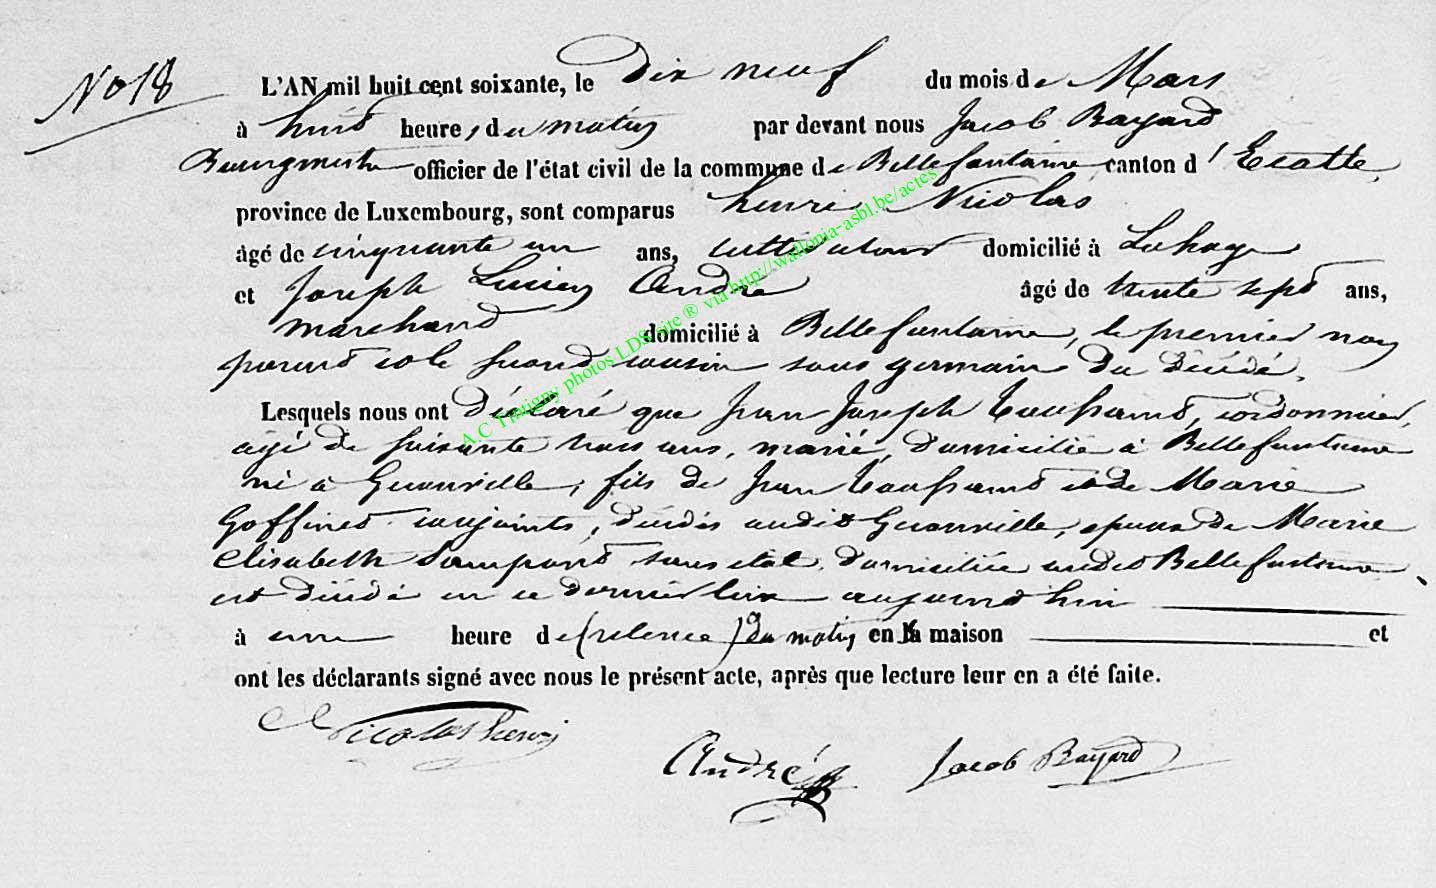 No 18
L'AN mil huit cent soixante, le dix neuf du mois de Mars
à huit heures du matin par devant nous Jacob Bayard
Bourgmestre officier de l'état civil de la commune de Bellefontaine canton d'Etalle,
province de Luxembourg, sont comparus henri Nicolas
âgé de cinquante un ans, cultivateur domicilié à Lahage
et Joseph Lucien André âgé de trente sept ans,
marchand domicilié à Bellefontaine, le premier non
parent et le second cousin sous germain du décédé,
Lesquels nous ont déclaré que Jean Joseph Toussaint, cordonnier,
agé de soixante trois ans, marié, domicilié à Bellefontaine
né à Gerouville, fils de Jean Toussaint et de Marie
Goffinet conjoints, décédés audit Gerouville, epoux de Marie
Elisabeth Lampont sans état, domiciliée audit Bellefontaine
est décédé en ce dernier lieu aujourd'hui
à une heure de (relence) du matin en la maison et
ont les déclarants signé avec nous le présent acte, après que lecture leur en a été faite.
Nicolas henri
André Jacob Bayard
A.C Tintigny photos LDS site ® via http://wallonia-asbl.be/actes